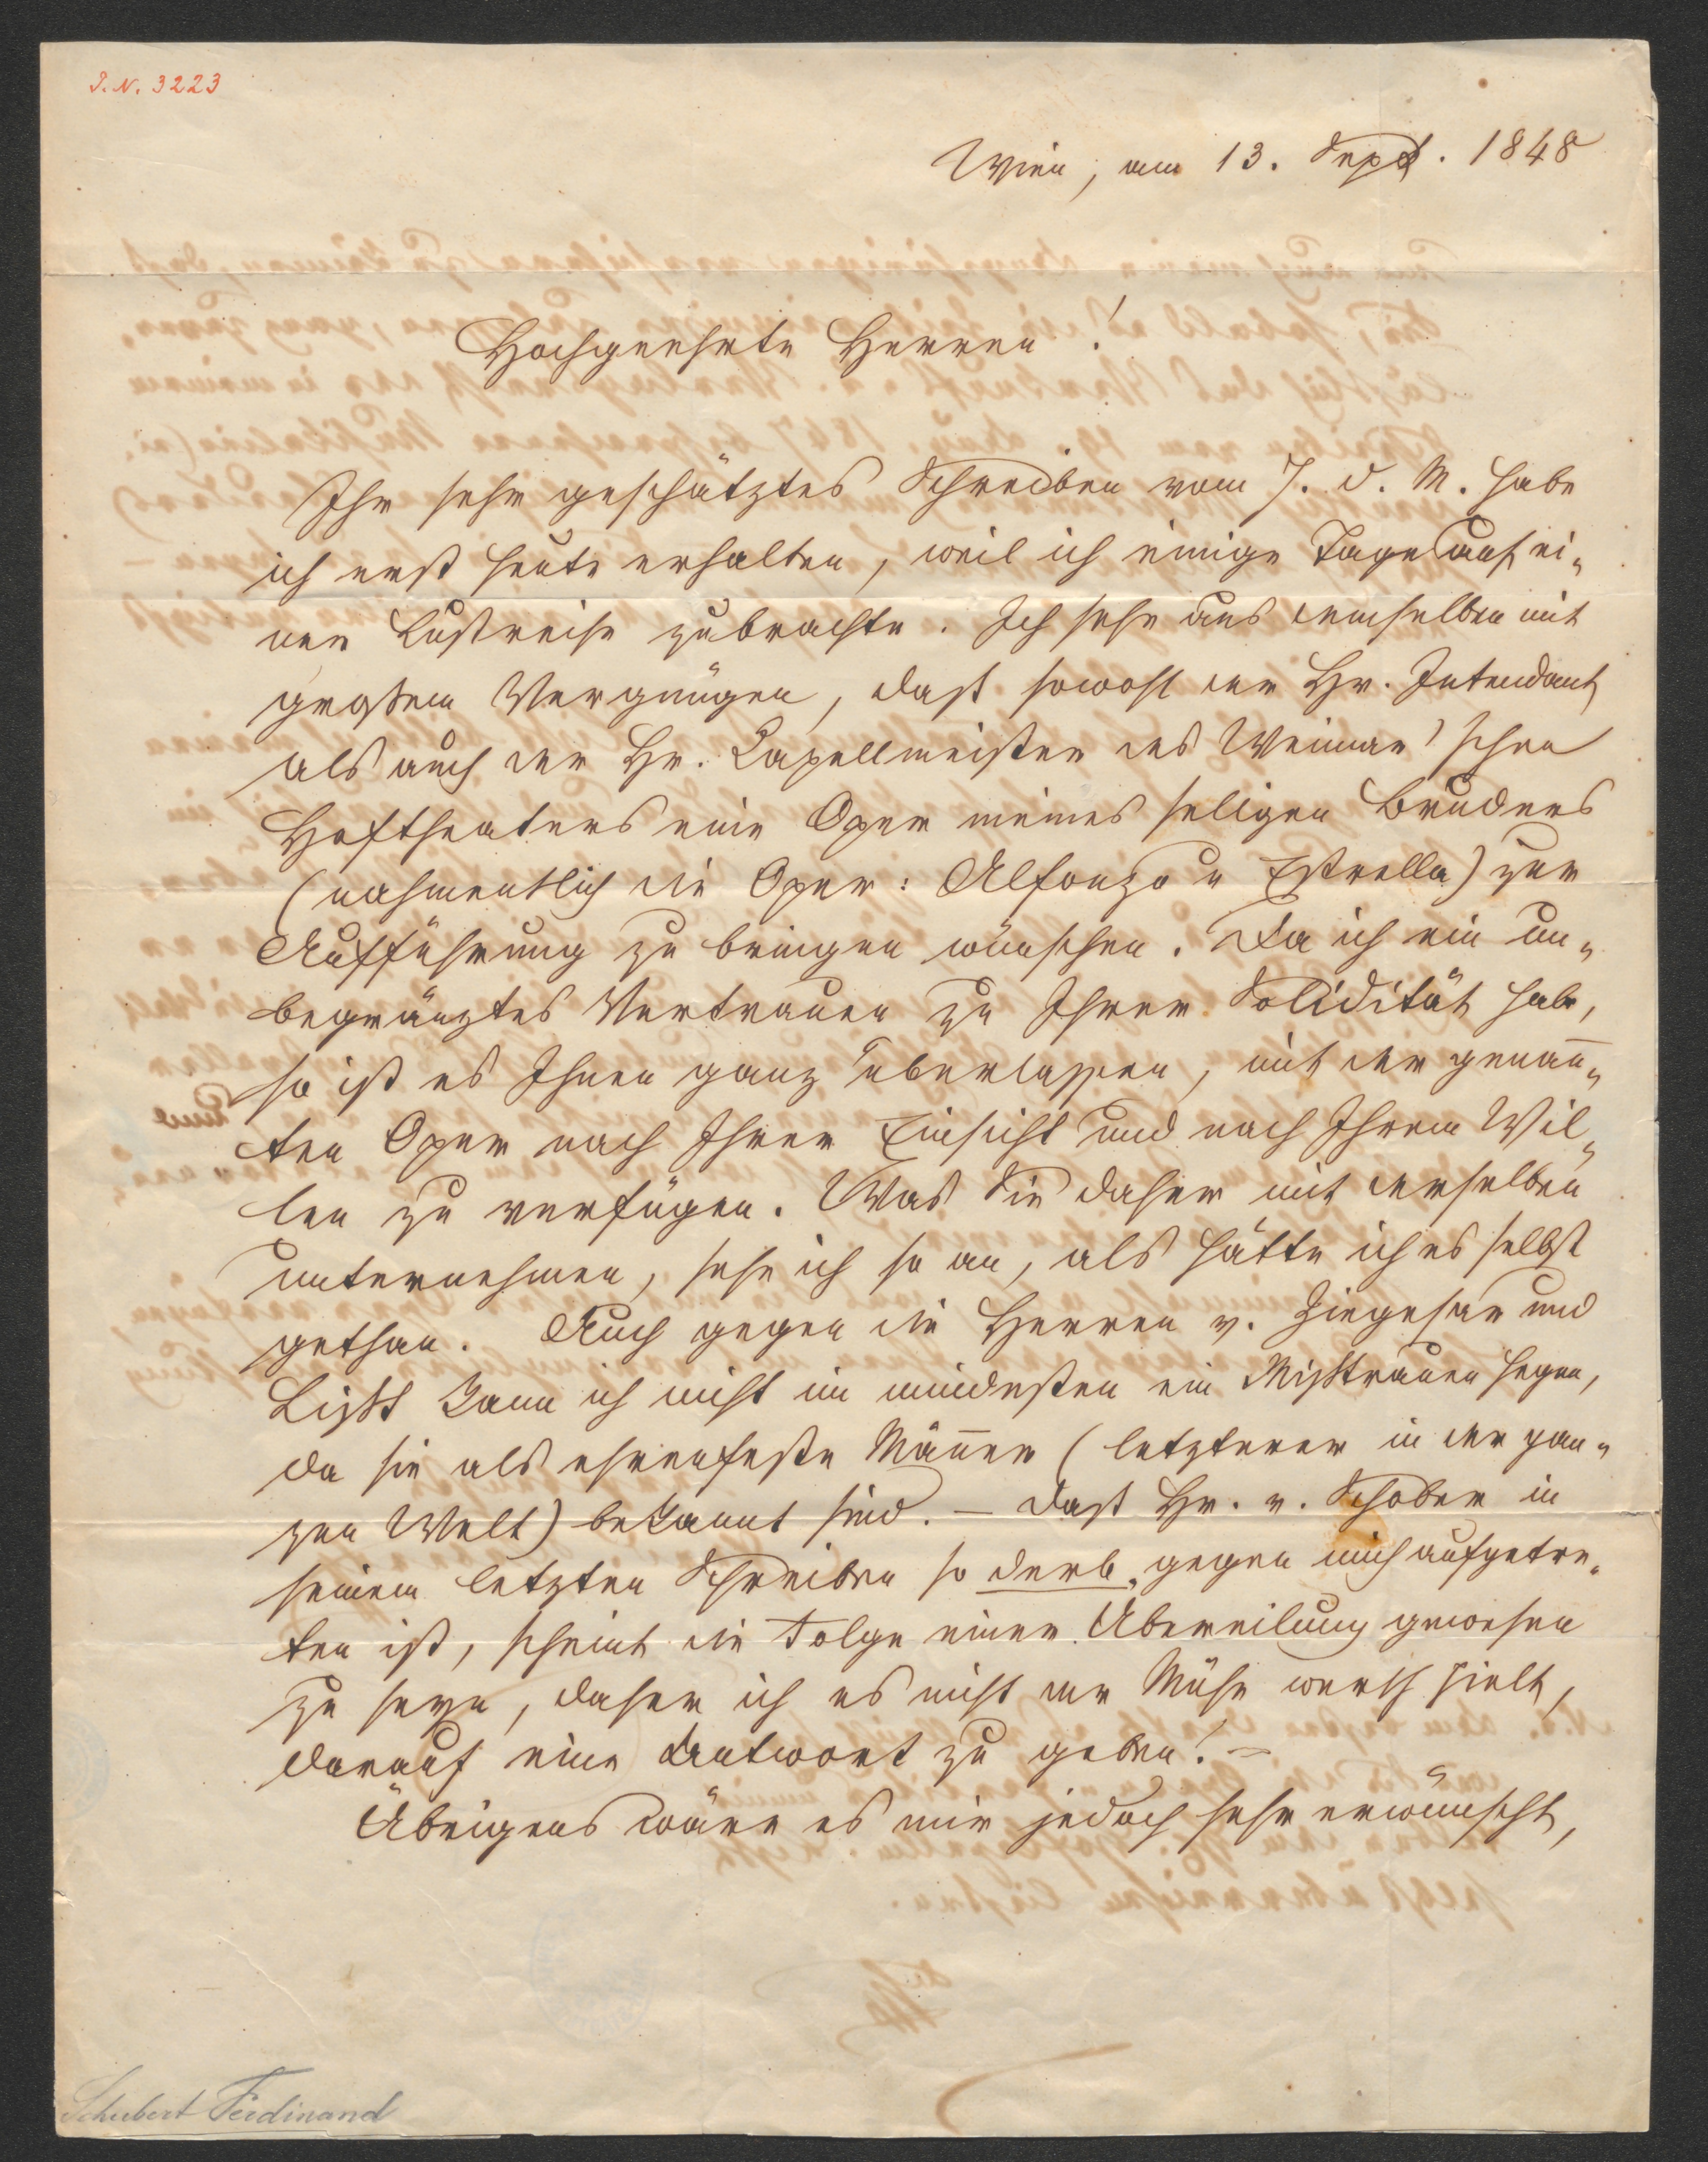 I. N. 3223
Wien, am 13. Sept. 1848
Hochgeehrte Herren!
Ihr sehr geschätztes Schreiben vom 7. d. M. habe
ich erst heute erhalten, weil ich einige Tage auf ei„
ner Lustreise zubrachte. Ich sehe aus demselben mit
großem Vergnügen, dast sowohl der Hr. Intendant
als auch der Hr. Capellmeister des Weimar'schen
Hoftheaters eine Oper meines seligen Bruders
(nahmentlich die Oper: Alfonzo u Estrella) zur
Aufführung zu bringen wünschen. Da ich ein un„
begränztes Vertrauen zu Ihrer Solidität habe,
so ist es Ihnen ganz überlassen, mit der genan̄„
ten Oper nach Ihrer Einsicht und nach Ihrem Wil„
len zu verfügen. Was Sie daher mit derselben
unternehmen, sehe ich so an, als hätte ich es selbst
gethan. Auch gegen die Herren v. Ziegesar und
Liszt kann ich nicht im mindesten ein Mißtrauen hegen,
da sie als ehrenfeste Män̄er (letzterer in der gan„
zen Welt) bekannt sind. – Dast Hr. v. Schober in
seinem letzten Schreiben so derb gegen mich aufgetre„
ten ist, scheint die Folge einer Übereilung gewesen
zu seyn, daher ich es nicht der Mühe werth hielt,
darauf eine Antwort zu geben! –
Übrigens wäre es mir jedoch sehr erwünscht,
Schubert Ferdinand